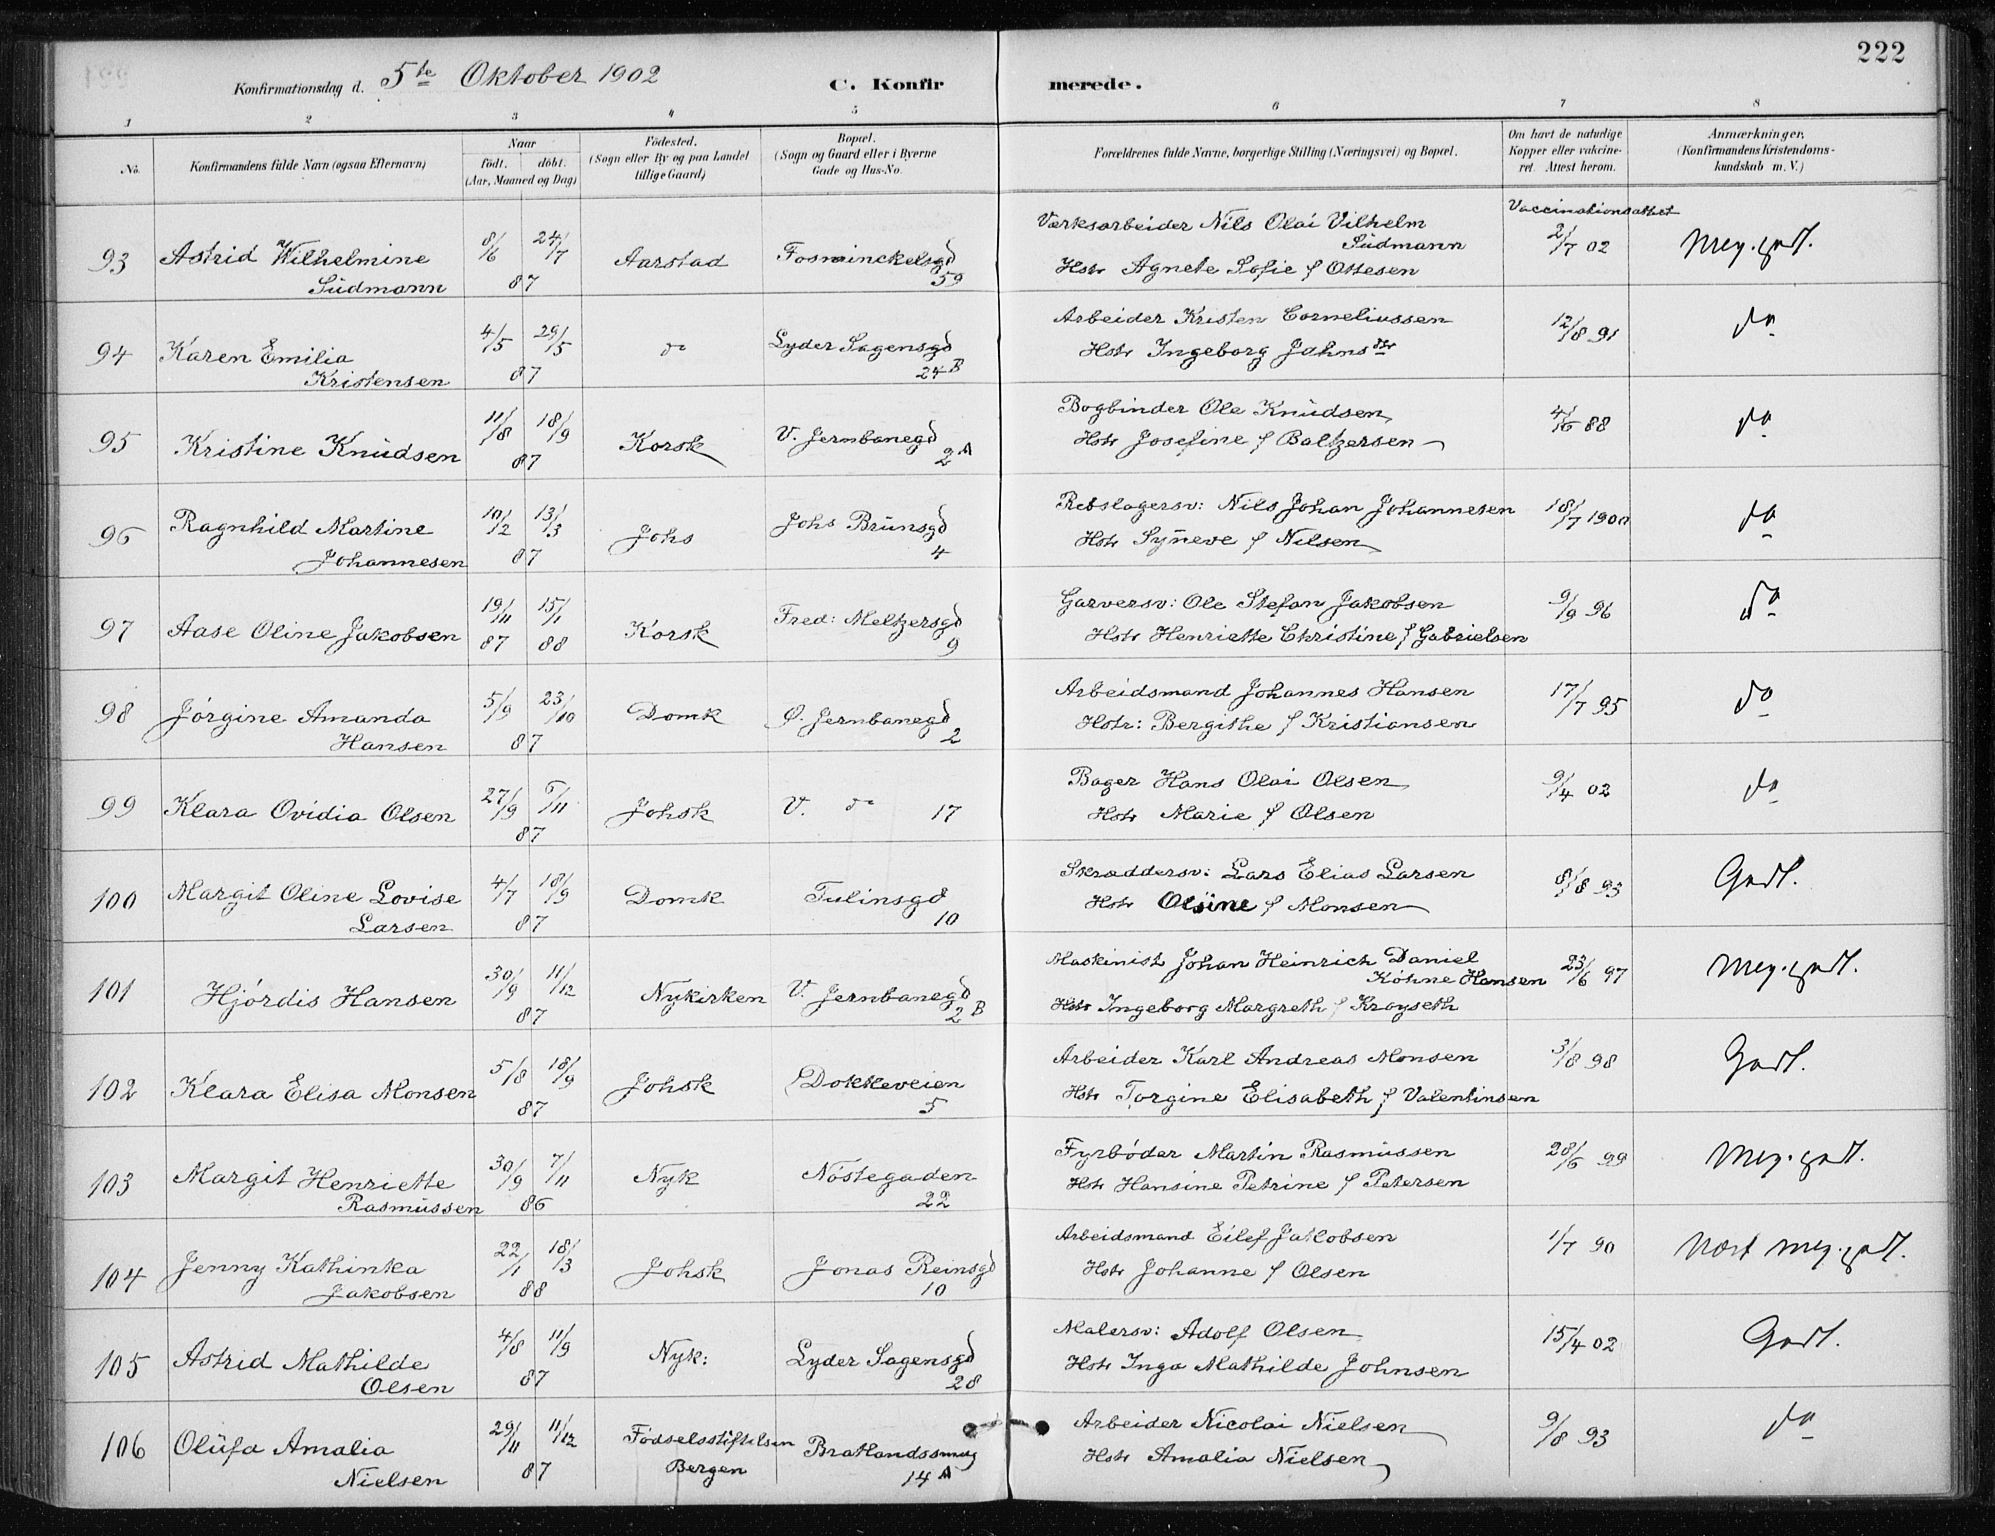 222
Konfirmationsdag d. 5te Oktober 1902 C. Konfirmerede.
1 2 3 4 5 6 7 8
No.
Konfirmandens fulde Navn (ogsaa Efternavn)
Naar
født. døbt.
(Aar, Maaned og Dag)
Fødested.
(Sogn eller By og paa Landet
tillige Gaard)
Bopæl.
(Sogn og Gaard eller i Byerne
Gade og Hus-No.
Forældrenes fulde Navne, borgerlige Stilling (Næringsvei) og Bopæl.
Om havt de naturlige
Kopper eller vakcine-
ret. Attest herom.
Anmærkninger.
(Konfirmandens Kristendoms-
kundskab m. V.)
Vaccinationsattest
93 Astrid Wilhelmine 8/6 24/7 Aarstad Foswinckelsgd Værksarbeider Nils Olai Vilhelm 2/7 02 Meg. godt.
Südmann 87 59 Südmann
Hstr Agnete Sofie f Ottesen
94 Karen Emilia 4/5 29/5 do Lyder Sagensgd Arbeider Kristen Corneliussen 12/8 91 do
Kristensen 87 24 B Hstr Ingeborg Jahnsdtr
95 Kristine Knudsen 11/8 18/9 Korsk V. Jernbanegd Bogbinder Ole Knudsen 4/6 88 do
87 2 A Hstr Josefine f Baltzersen
96 Ragnhild Martine 10/2 13/3 Johs Johs Brunsgd Rebslagersv: Nils Johan Johannesen 18/7 1900 do
Johannesen 87 4 Hstr Synneve f Nilsen
97 Aase Oline Jakobsen 19/11 15/1 Korsk Fred: Meltzersgd Garversv: Ole Stefan Jakobsen 9/9 96 do
87 88 9 Hstr Henriette Christine f Gabrielsen
98 Jørgine Amanda 5/9 23/10 Domk Ø. Jernbanegd Arbeidsmand Johannes Hansen 17/7 95 do
Hansen 87 2 Hstr: Bergithe f Kristiansen
99 Klara Ovidia Olsen 27/9 6/11 Johsk V. do 17 Bager Hans Olai Olsen 9/4 02 do
87 Hstr Marie f Olsen
100 Margit Oline Lovise 4/7 18/9 Domk Tulinsgd Skræddersv: Lars Elias Larsen 8/8 93 Godt.
Larsen 87 10 Hstr Olsine f Monsen
101 Hjørdis Hansen 30/9 11/12 Nykirken V. Jernbanegd Maskinist Johan Heinrich Daniel 23/6 97 Meg. godt.
87 2 B Køhne Hansen
Hstr Ingeborg Margreth f Krøyseth
102 Klara Elisa Monsen 5/8 18/9 Johsk Dokkeveien Arbeider Karl Andreas Monsen 3/8 98 Godt.
87 5 Hstr Torgine Elisabeth f Valentinsen
103 Margit Henriette 30/9 7/11 Nyk Nøstegaden Fyrbøder Martin Rasmussen 28/6 99 Meg. godt.
Rasmussen 86 22 Hstr Hansine Petrine f Petersen
104 Jenny Kathinka 22/1 18/3 Johsk Jonas Reinsgd Arbeidsmand Eilef Jakobsen 1/7 90 Næst meg. godt.
Jakobsen 88 10 Hstr Johanne f Olsen
105 Astrid Mathilde 4/8 11/9 Nyk: Lyder Sagensgd Malersv: Adolf Olsen 15/4 02 Godt.
Olsen 87 28 Hstr Inga Mathilde Johnsen
106 Olufa Amalia 29/11 11/12 Fødselsstiftelsen Bratlandssmug Arbeider Nicolai Nielsen 9/8 93 do
Nielsen 87 Bergen 14 A Hstr Amalia Nielsen